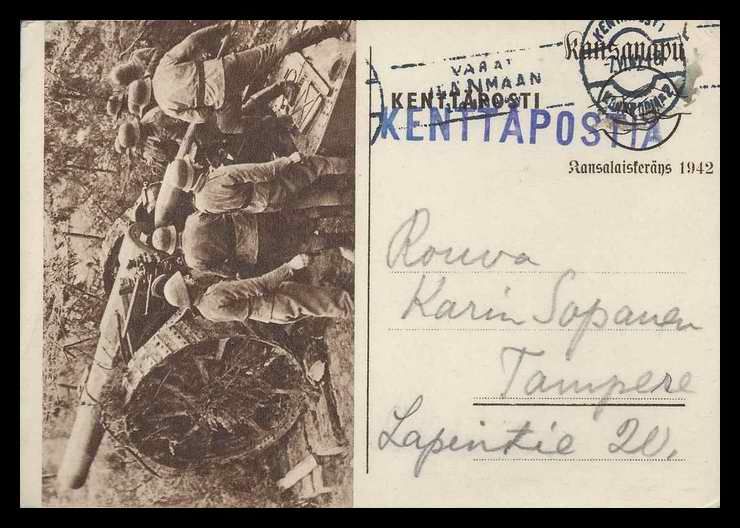 Kansanapu
KENTTÄPOSTI
VARAT
MAAN
KENTTÄPOSTI
KENTTÄPOSTIA
Kansalaiskeräys 1942
Rouva
Karin Sopanen
Tampere
Lapintie 20.